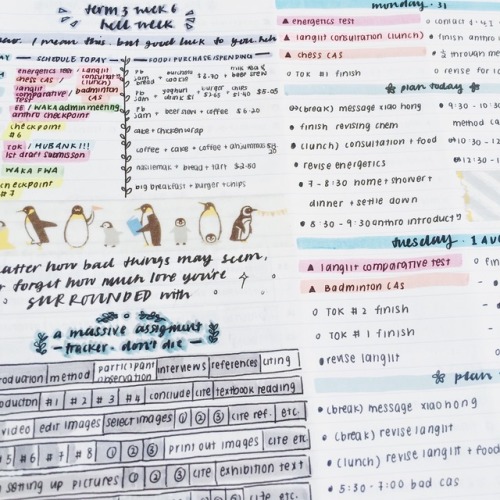 term 3 week 6
hell week
I mean this but good luck to you
SCHEDULE TODAY
FOOD / PURCHASE / SPENDING
energetics test
chess CAS /
langlit
comparative
test
langlit
consultation
(lunch)
badminton
CAS
EE / WAKA admin meeting
anthro checkpoint
checkpoint
#6
tok / HUBANK!!!
1st draft submission
WAKA FWA
checkpoint
#7
pb
jam
pb
jam
yoghurt
drink $1
burger
$1.40
$5.05
jam + beer new + coffee $6.20
cake + chicken wrap
coffee + cake + coffee + ahjumma
nasi lemak + bread + tart $2.50
big breakfast + burger + chips
matter how bad things may seem,
forget how much love you're
SURROUNDED with
a massive assignment
- tracker. don't die -
introduction method participant observation interviews references citing
#1 #2 #3 #4 conclude cite textbook reading
video edit images select images ① ② ③ cite ref. etc.
#5 #6 #7 #8 ① ② ③ print out images cite etc
setting up pictures ① ② ③ cite exhibition text
cite etc.
monday. 31
▲ energetics test
▲ langlit consultation (lunch)
▲ chess CAS
o TOK #1 finish
o contact
o finish anthro
through
o revise for
plan today
• (break) message xiao hong
• finish revising chem
• (lunch) consultation + food
• revise energetics
• 7 - 8:30 home + shower +
dinner + settle down
• 8:30 - 9:30 anthro introduct
• 9:30 - 10:30
method
tuesday. 1 AU
▲ langlit comparative test
▲ Badminton CAS
o TOK #2 finish
o TOK #1 finish
• revise langlit
plan
• (break) message xiao hong
• (break) revise langlit
• (lunch) revise langlit + food
• 5:30 - 7:00 bad cas